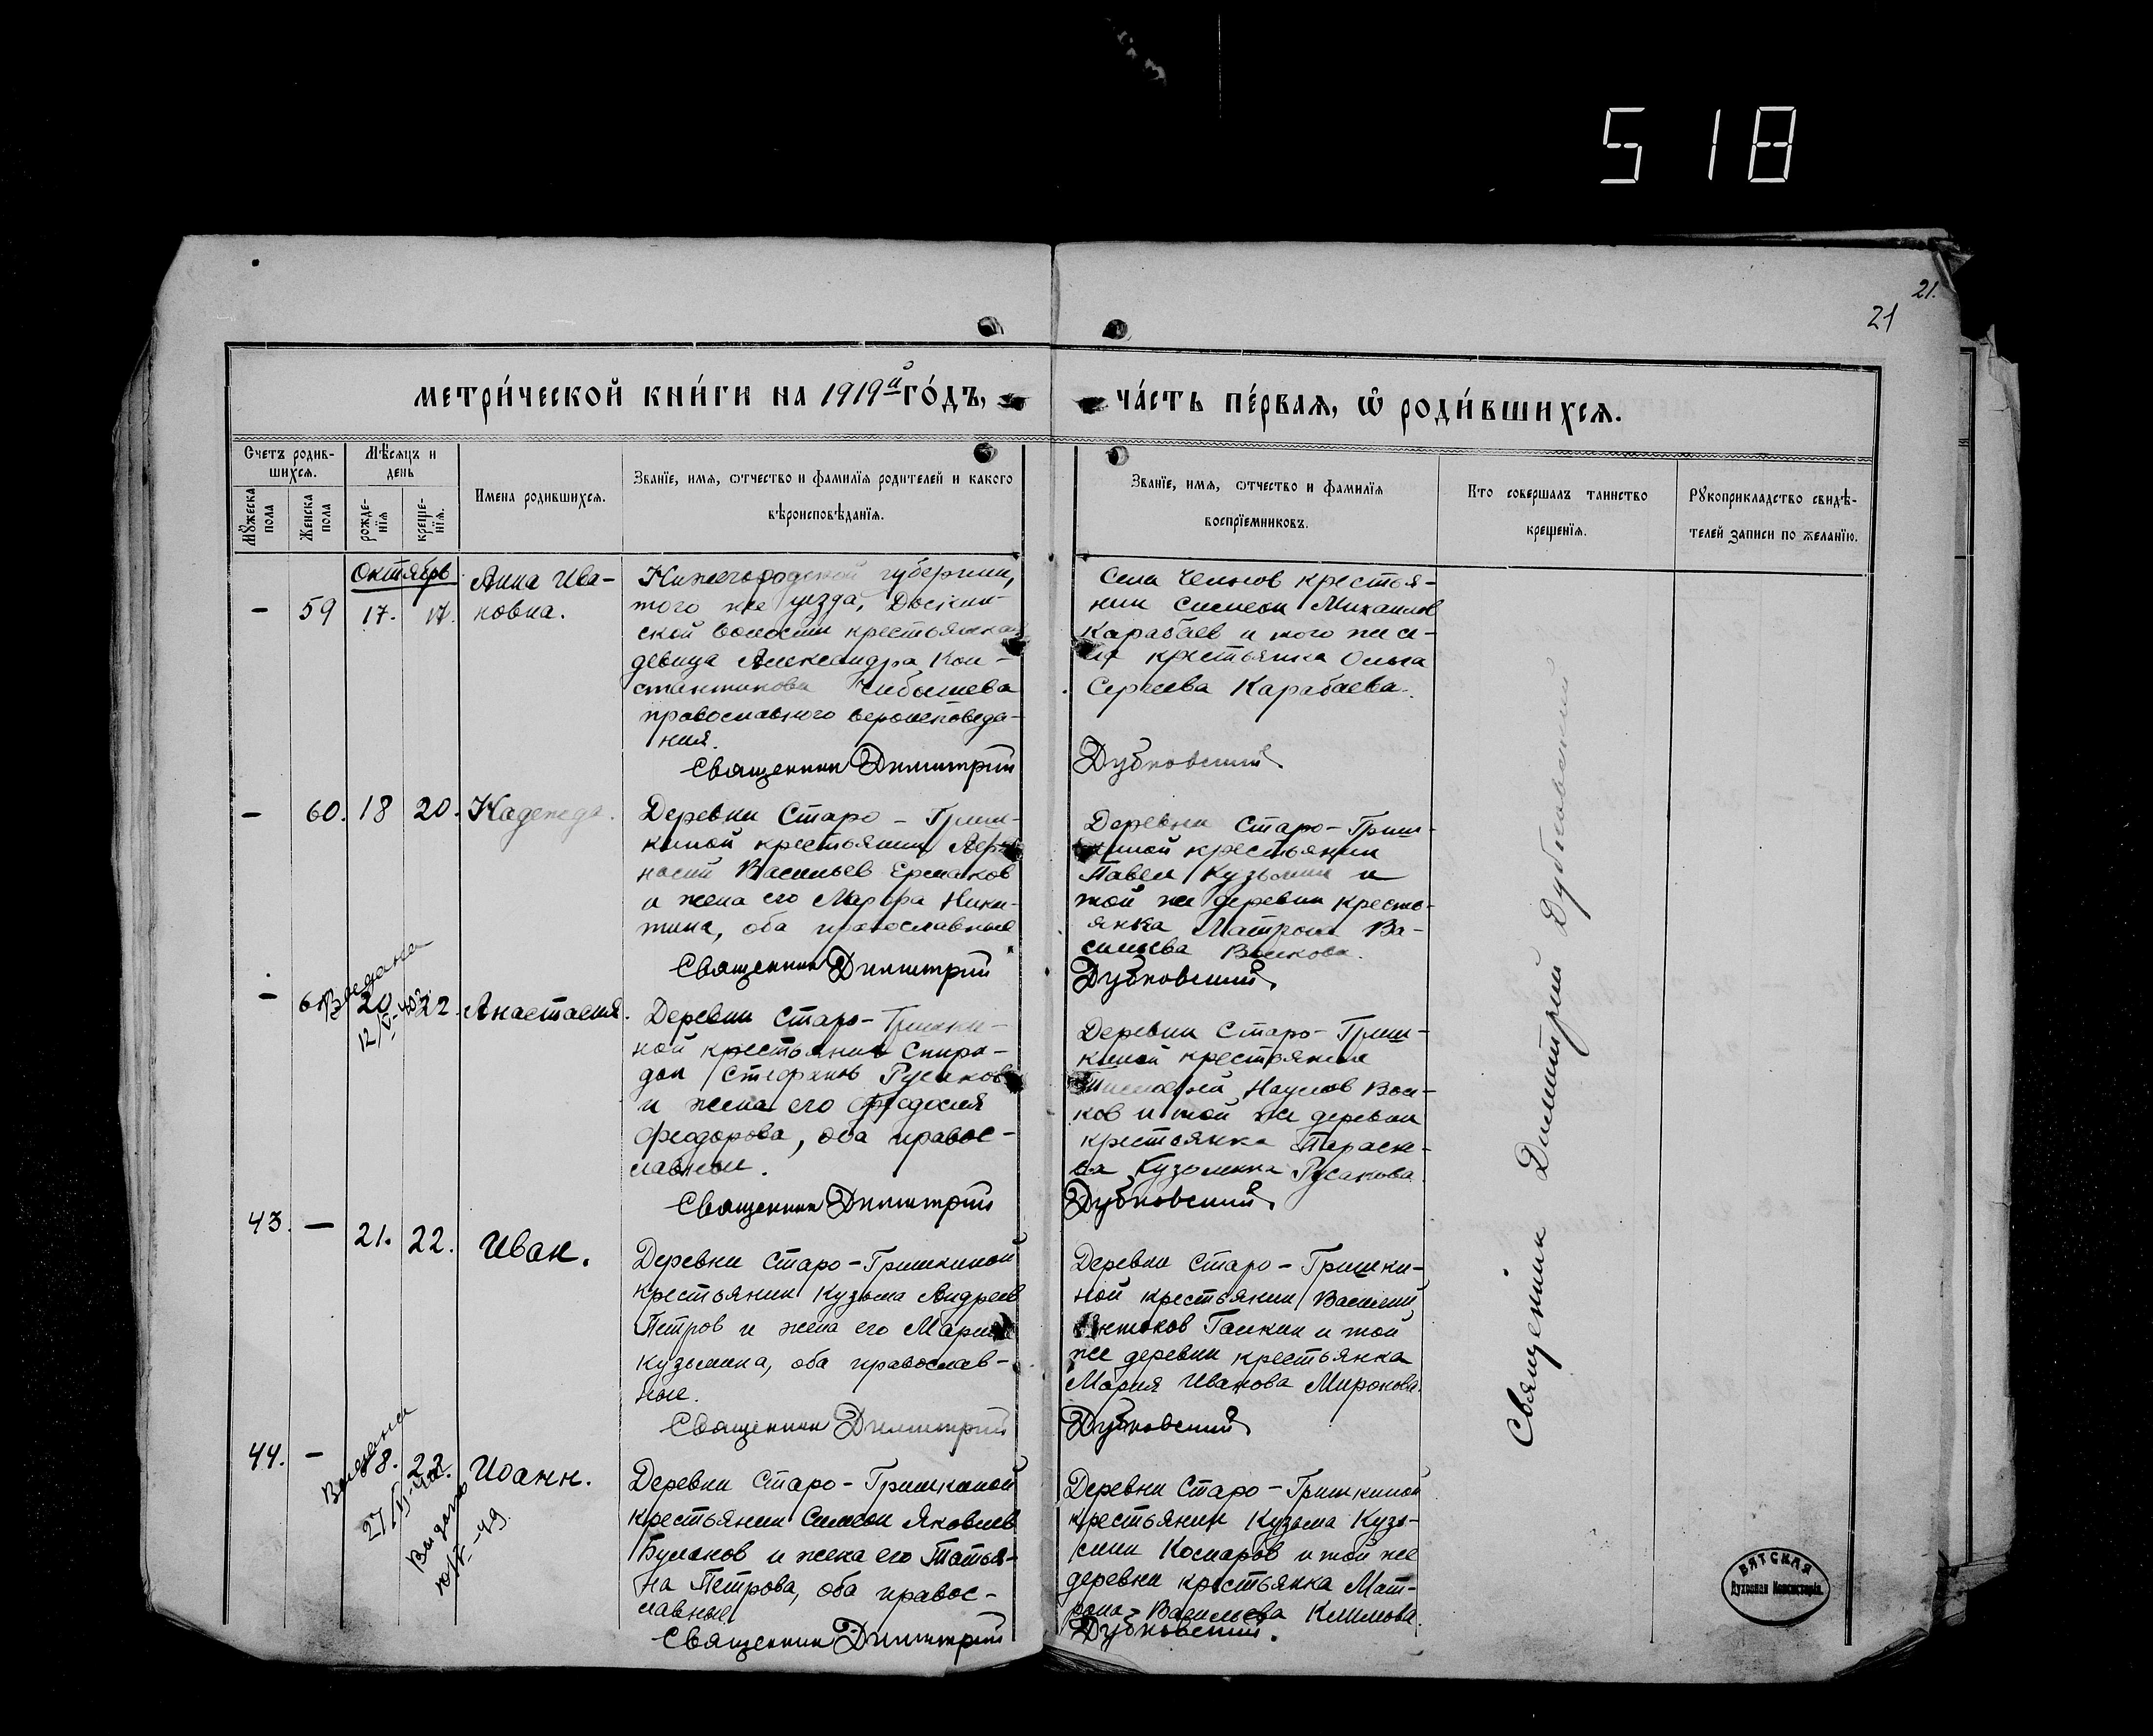 518
21.
21
МЕТРИ́ЧЕСКОЙ КНИ́ГИ НА 1919й ГО́ДЪ,
ЧА́СТЬ ПЕ́РВАЯ, Ѡ РОДИ́ВШИХСЯ.
Счетъ родив-
шихся.
Мѣсяцъ и
день
Мꙋжеска
пола
Женска
пола
рожде-
нїя
креще-
нїя.
Имена родившихся.
Званїе, имя, ѡтчество и фамилїя родителей и какого
вѣроисповѣданїя.
Званїе, имя, ѡтчество и фамилїя
воспрїемниковъ.
Кто совершалъ таинство
крещенїя.
Рꙋкоприкладство свидѣ-
телей записи по желанїю.
Октябрь
– 59 17. 17.
Анна Ива-
новна.
Нижегородской губернии,
того же уезда,
ской волости крестьянка
девица Александра Кон-
стантинова Чибышева
православного вероисповеда-
ния.
Священник Димитрий
Села крестья-
нин Симеон Михаилов
Карабаев и того же се-
ла крестьянка Ольга
Сергеева Карабаева.
Дубновский.
– 60. 18 20. Надежда.
Деревни Старо-Гриш-
киной крестьянин Афа
насий Васильев Ермаков
и жена его Марфа Ники-
тина, оба православные
Священник Димитрий
Деревни Старо-Гриш-
киной крестьянин
Павел Кузьмин и
той же деревни кресть-
янка Матрона Ва-
сильева Волкова.
Дубновский.
– 61 20 22. Анастасия.
Выдана
12/V-
Деревни Старо-Гришки-
ной крестьянин Спири-
дон Стефанов Русаков
и жена его Феодосия
Феодорова, оба правос-
лавные.
Священник Димитрий
Деревни Старо-Гриш-
киной крестьянин
Тимофей Наумов Вол-
ков и той же деревни
крестьянка Параске-
ва Кузьмина Русакова
Дубновский.
43. – 21. 22. Иван.
Деревни Старо-Гришкиной
крестьянин Кузьма Андреев
Петров и жена его Мария
Кузьмина, оба православ-
ные.
Священник Димитрий
Деревни Старо-Гришки-
ной крестьянин Василий
Антонов Галкин и той
же деревни крестьянка
Мария Иванова Миронова.
Дубновский
44. – 18. 22. Иоанн.
Выдана
27/VI-
Выдано
-49.
Деревни Старо-Гришкиной
крестьянин Симеон Яковлев
Буланов и жена его Татья-
на Петрова, оба правос-
лавные
Священник Димитрий
Деревни Старо-Гришкиной
крестьянин Кузьма Кузь-
мин Комаров и той же
деревни крестьянка Мат-
рона Васильева Климова.
Дубновский.
Священник Димитрий Дубновский
ВЯТСКАЯ
Духовная Консисторія.